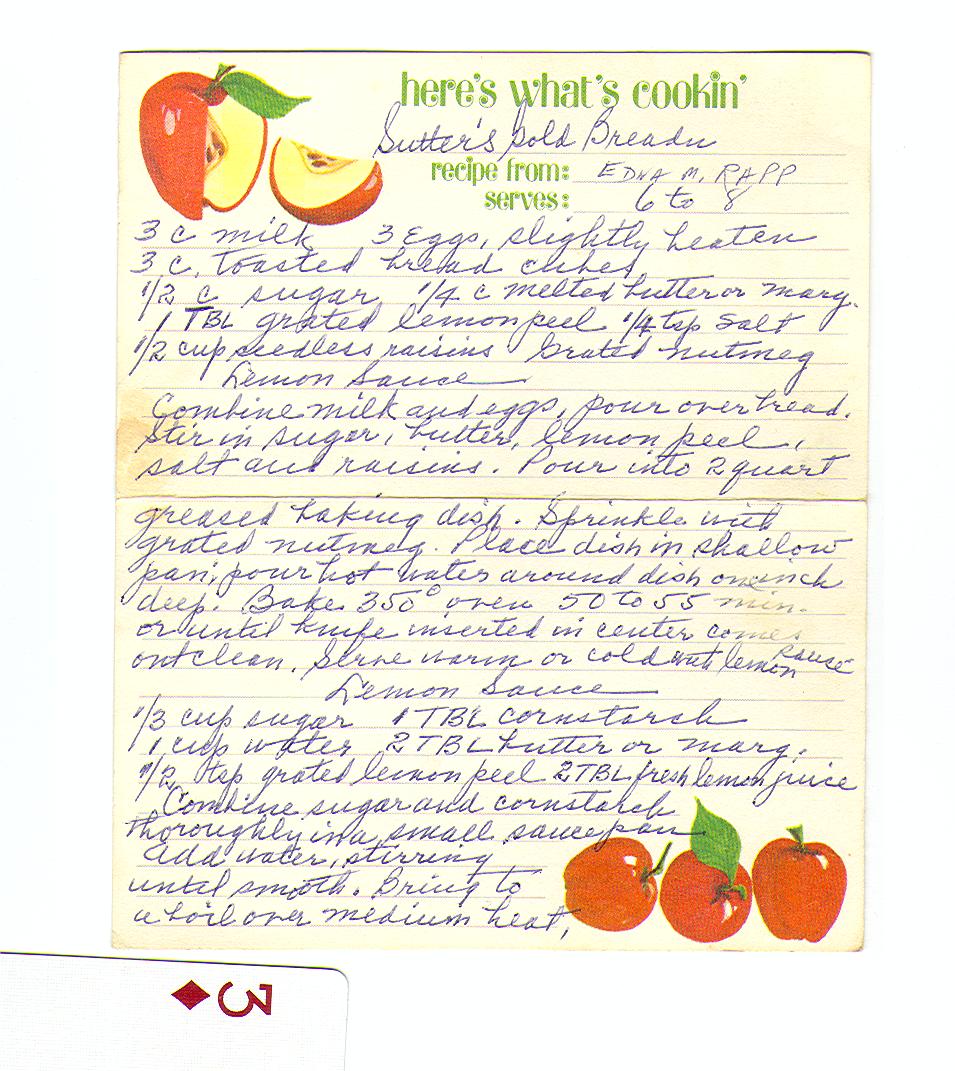 here's what's cookin'
Sutter's Gold Breadn
recipe from: EDNA M. RAPP
serves: 6 to 8
3 c milk 3 Eggs, slightly beaten
3 c. Toasted bread cubes
1/2 c sugar 1/4 c melted butter or marg.
1 TBL grated lemon peel 1/4 tsp salt
1/2 cup seedless raisins Grated nutmeg
Lemon Sauce
Combine milk and eggs, pour over bread.
Stir in sugar, butter, lemon peel,
salt and raisins. Pour into 2 quart
greased baking dish. Sprinkle with
grated nutmeg. Place dish in shallow
pan, pour hot water around dish one inch
deep. Bake 350° oven 50 to 55 min.
or until knife inserted in center comes
out clean. Serve warm or cold with lemon sause
Lemon Sauce
1/3 cup sugar 1 TBL cornstarch
1 cup water 2 TBL butter or marg.
1/2 tsp grated lemon peel 2 TBL fresh lemon juice
Combine sugar and cornstarch
thoroughly in a small saucepan
add water, stirring
until smooth. Bring to
a boil over medium heat,
3